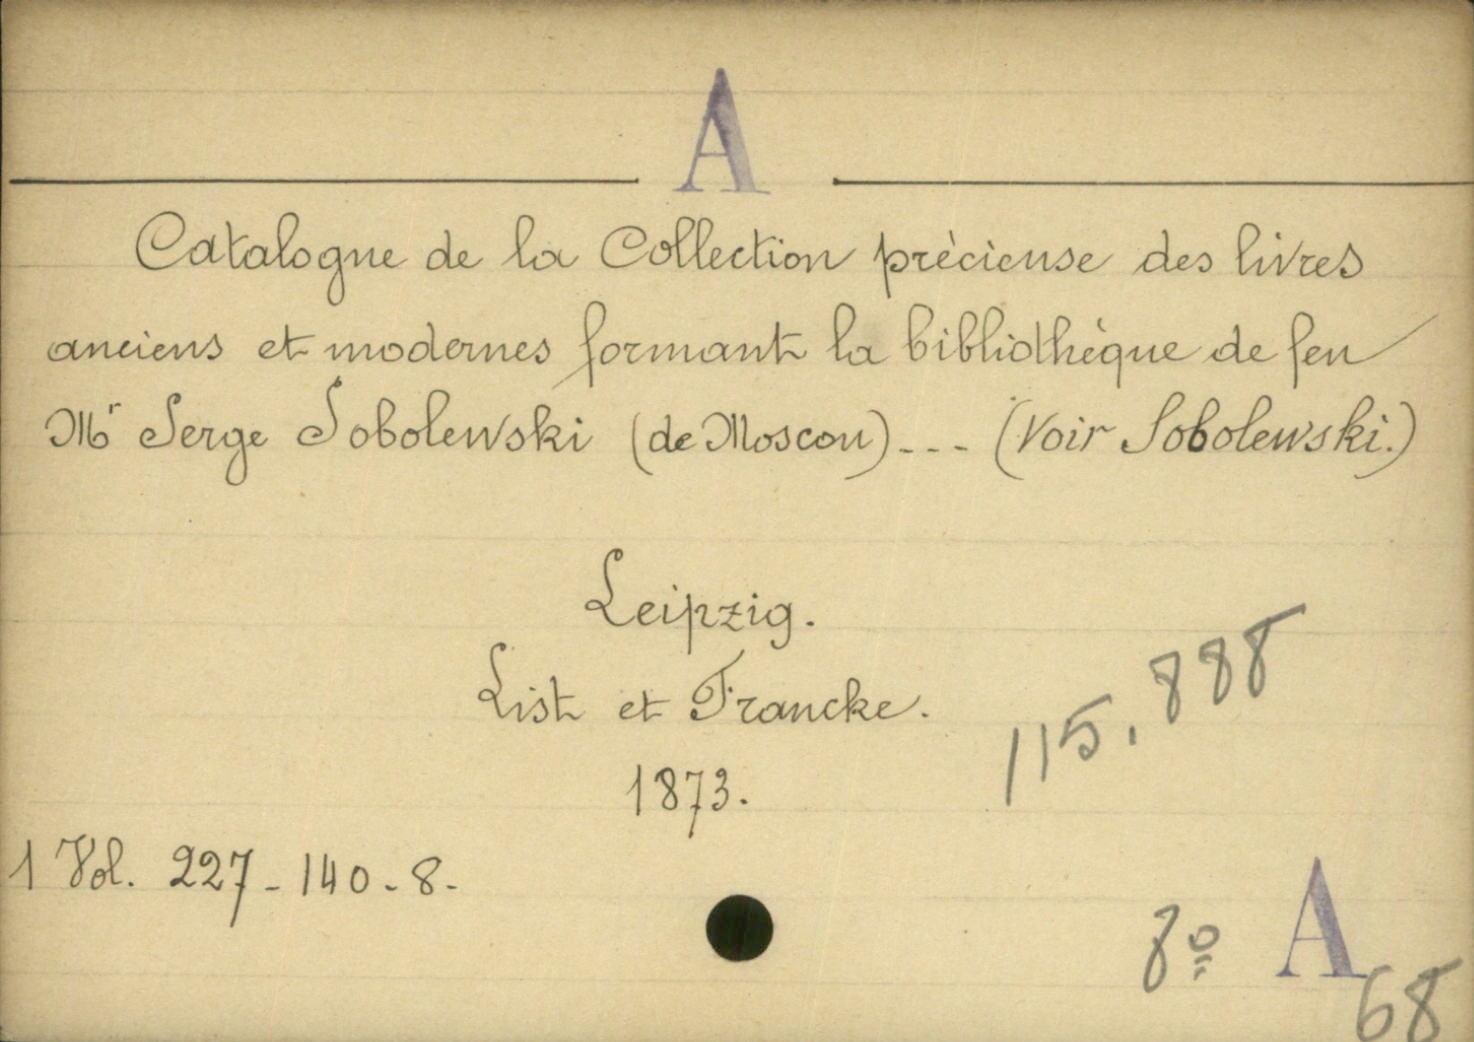 A
Catalogue de la Collection précieuse des livres
anciens et modernes formant la bibliothèque de feu
Mr Serge Sobolewski (de Moscou)--- (Voir Sobolewski.)
Leipzig.
List et Francke.
1873.
115.888
1 Vol. 227-140-8-
8º A
68